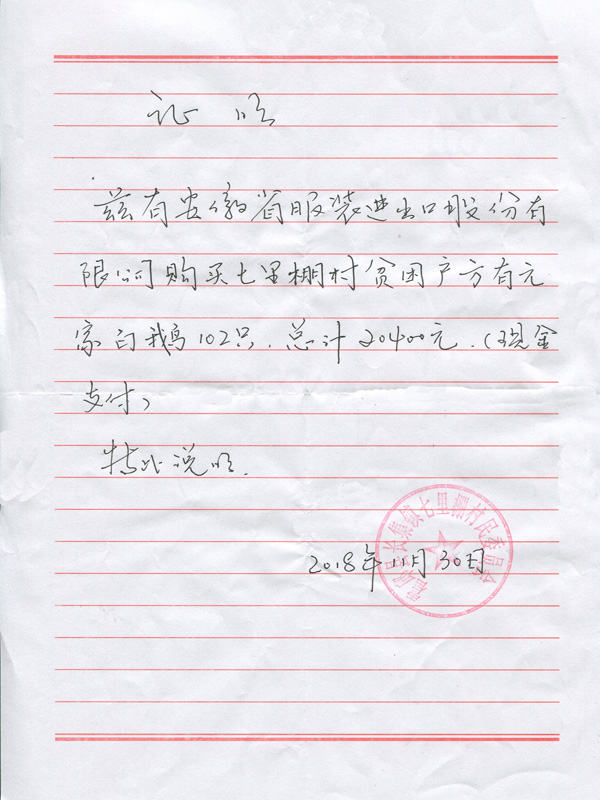 证明
兹有安徽省服装进出口股份有
限公司购买七里棚村贫困户方有元
家白鹅102只，总计20400元．（现金
支付）
特此说明．
霍邱县长集镇七里棚村民委员会
2018年11月30日